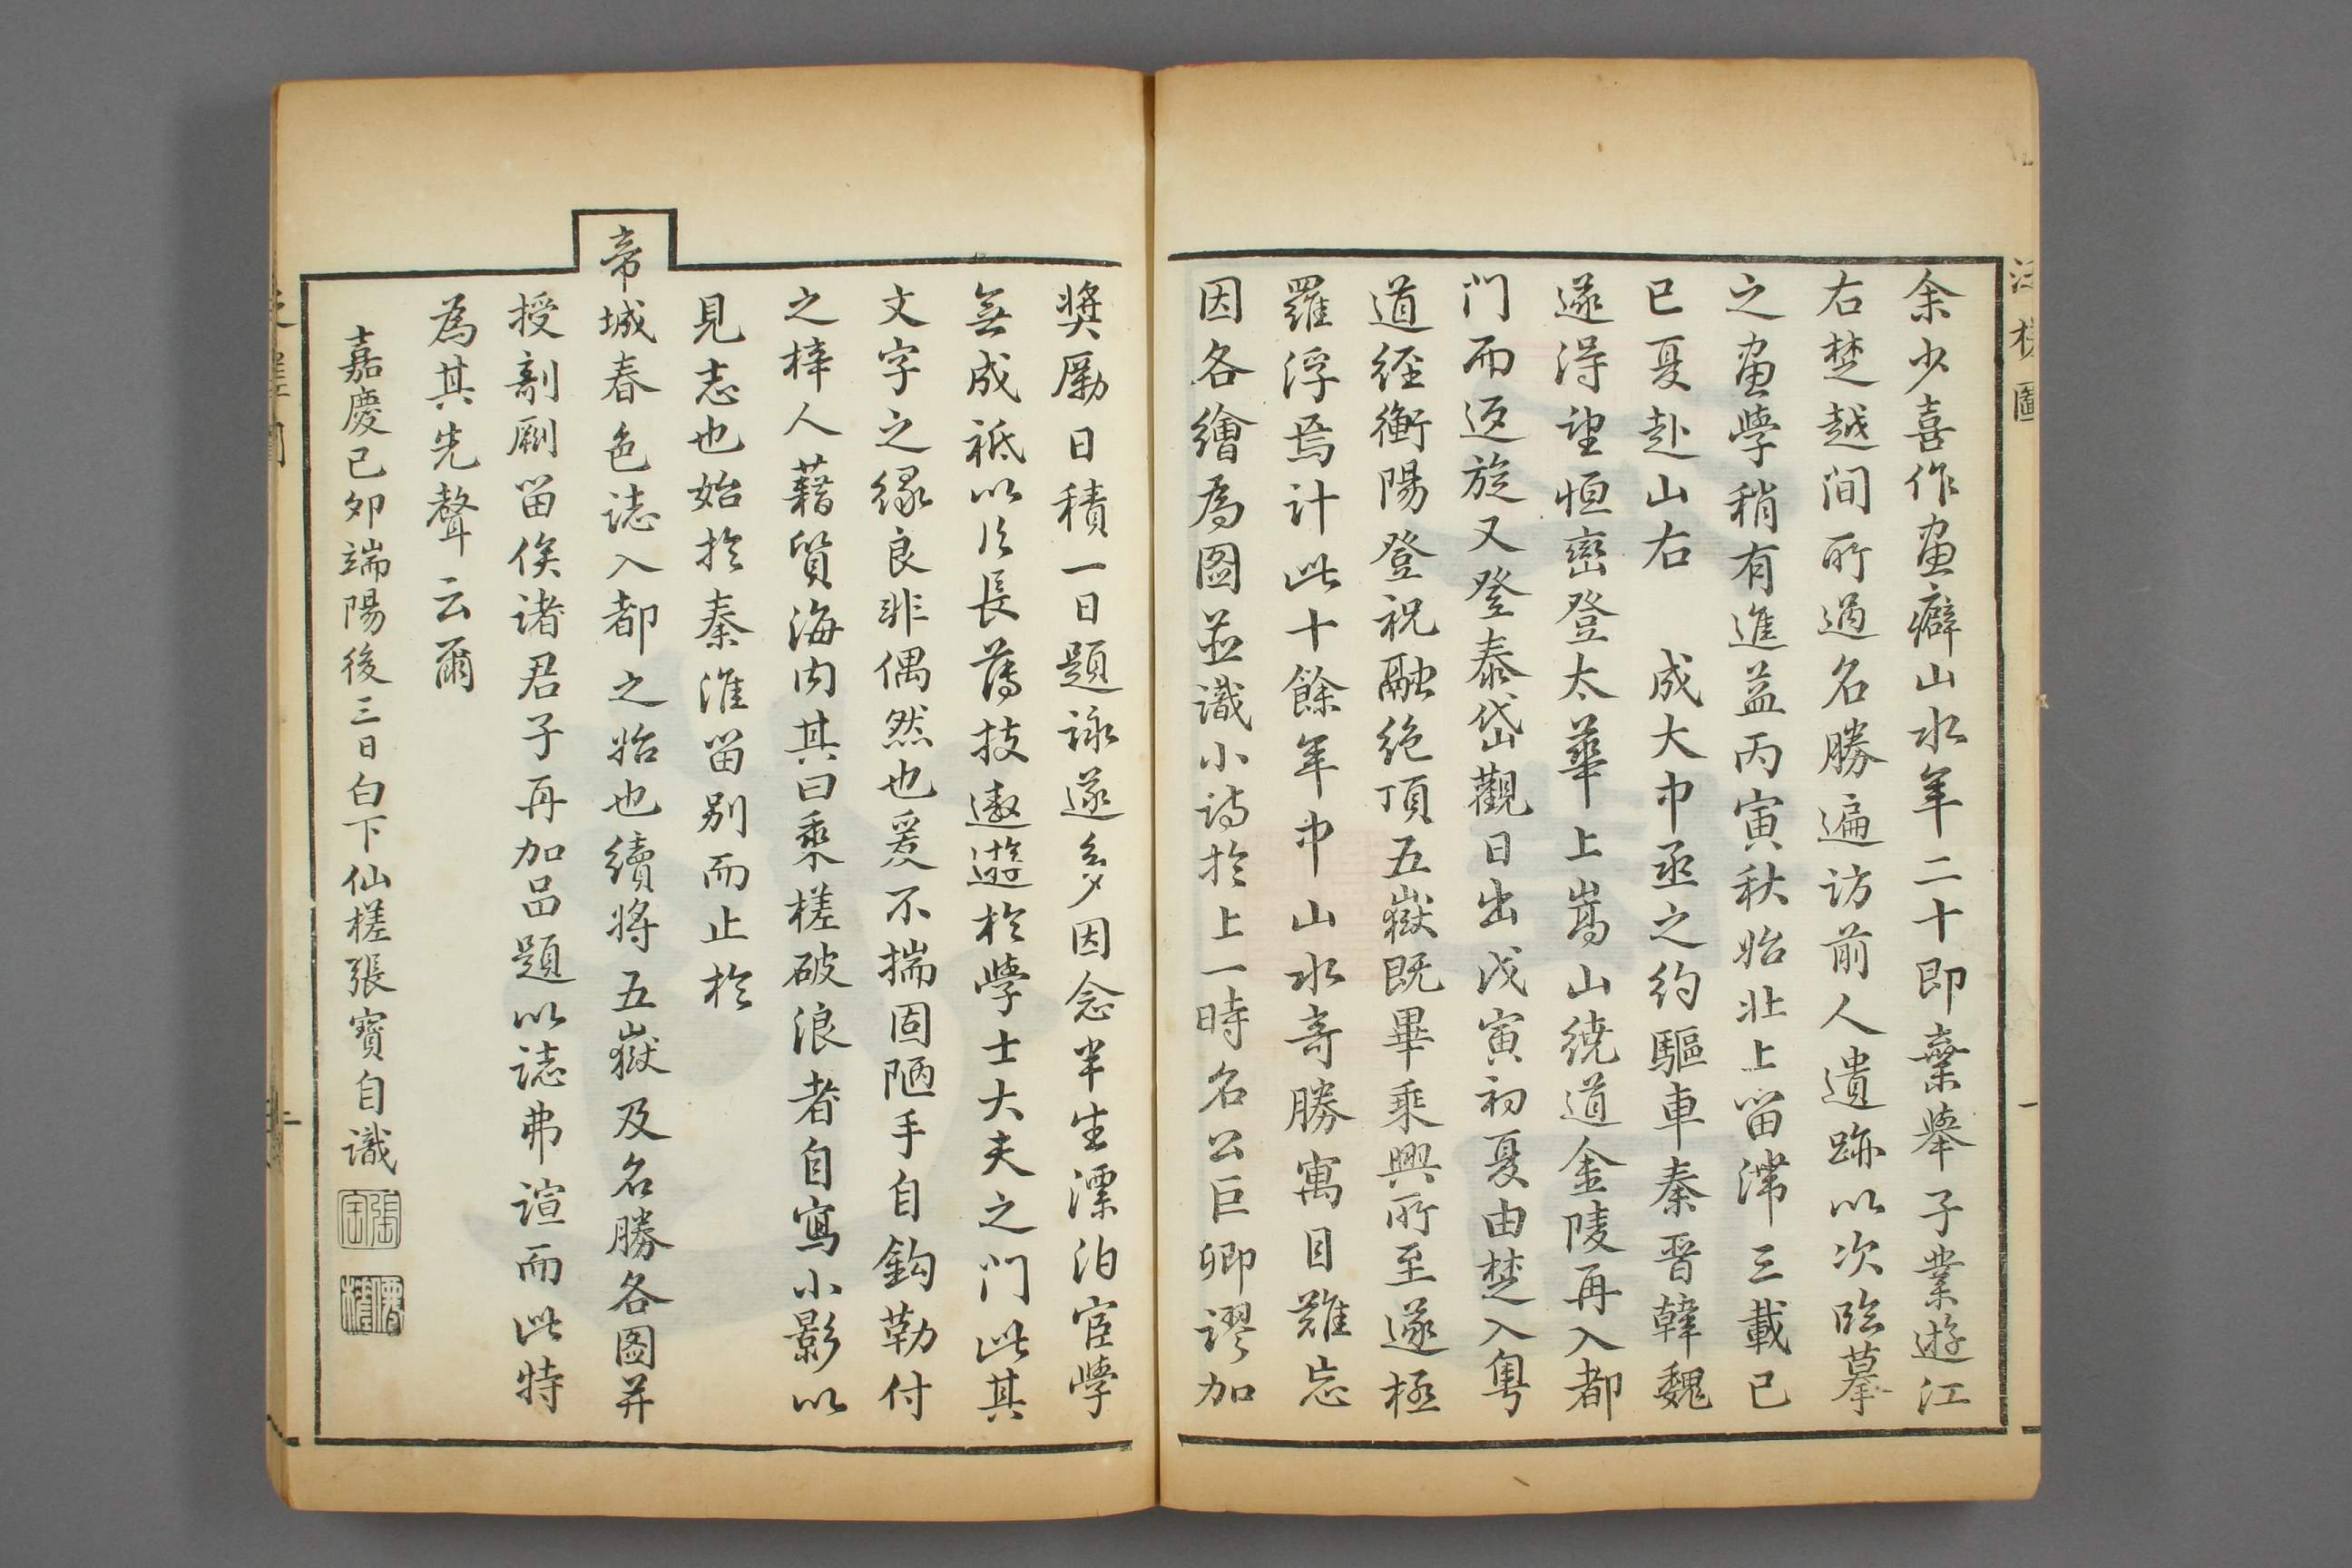 余少喜作畫癖山水年二十即棄舉子業遊江
右楚越间所過名勝遍访前人遺跡以次臨摹
之畫學稍有進益丙寅秋始北上留滯三載己
巳夏赴山右　成大中丞之约驅車秦晋韓魏
遂得望恒巒登太華上嵩山繞道金陵再入都
门而返旋又登泰岱觀日出戊寅初夏由楚入粤
道经衡陽登祝融绝頂五嶽既畢乘興所至遂極
羅浮焉计此十餘年中山水奇勝寓目難忘
因各繪為图並識小诗於上一時名公巨卿謬加
奬勵日積一日題詠遂多因念半生漂泊宦學
無成祗以片長薄技遨遊於學士大夫之门此其
文字之缘良非偶然也爰不揣固陋手自鈎勒付
之梓人藉質海内其曰乘槎破浪者自寫小影以
見志也始於秦淮留别而止於
帝城春色誌入都之始也續將五嶽及名勝各图并
授剞劂留俟诸君子再加品題以誌弗谊而此特
為其先聲云爾
嘉慶己卯端陽後三日白下仙槎張寶自識
張寶
僊槎
泛槎圖
一